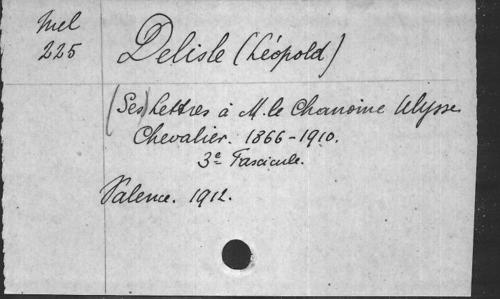 Mel
225
Delisle (Léopold)
(Ses) Lettres à M. le Chanoine Ulysse
Chevalier. 1866-1910.
3e Fascicule.
Valence. 1912.